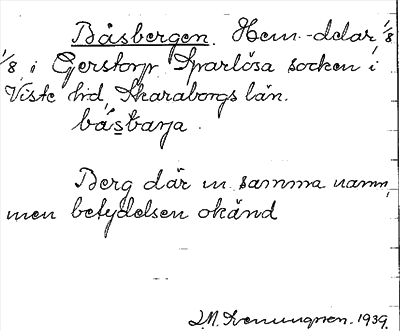 Båsbergen. Hem-delar 1/8
1/8 i Gerstorp Sparlösa socken i
Viste hd, Skaraborgs län.
båsbarja.
Berg där m samma namn,
men betydelsen okänd
1939.